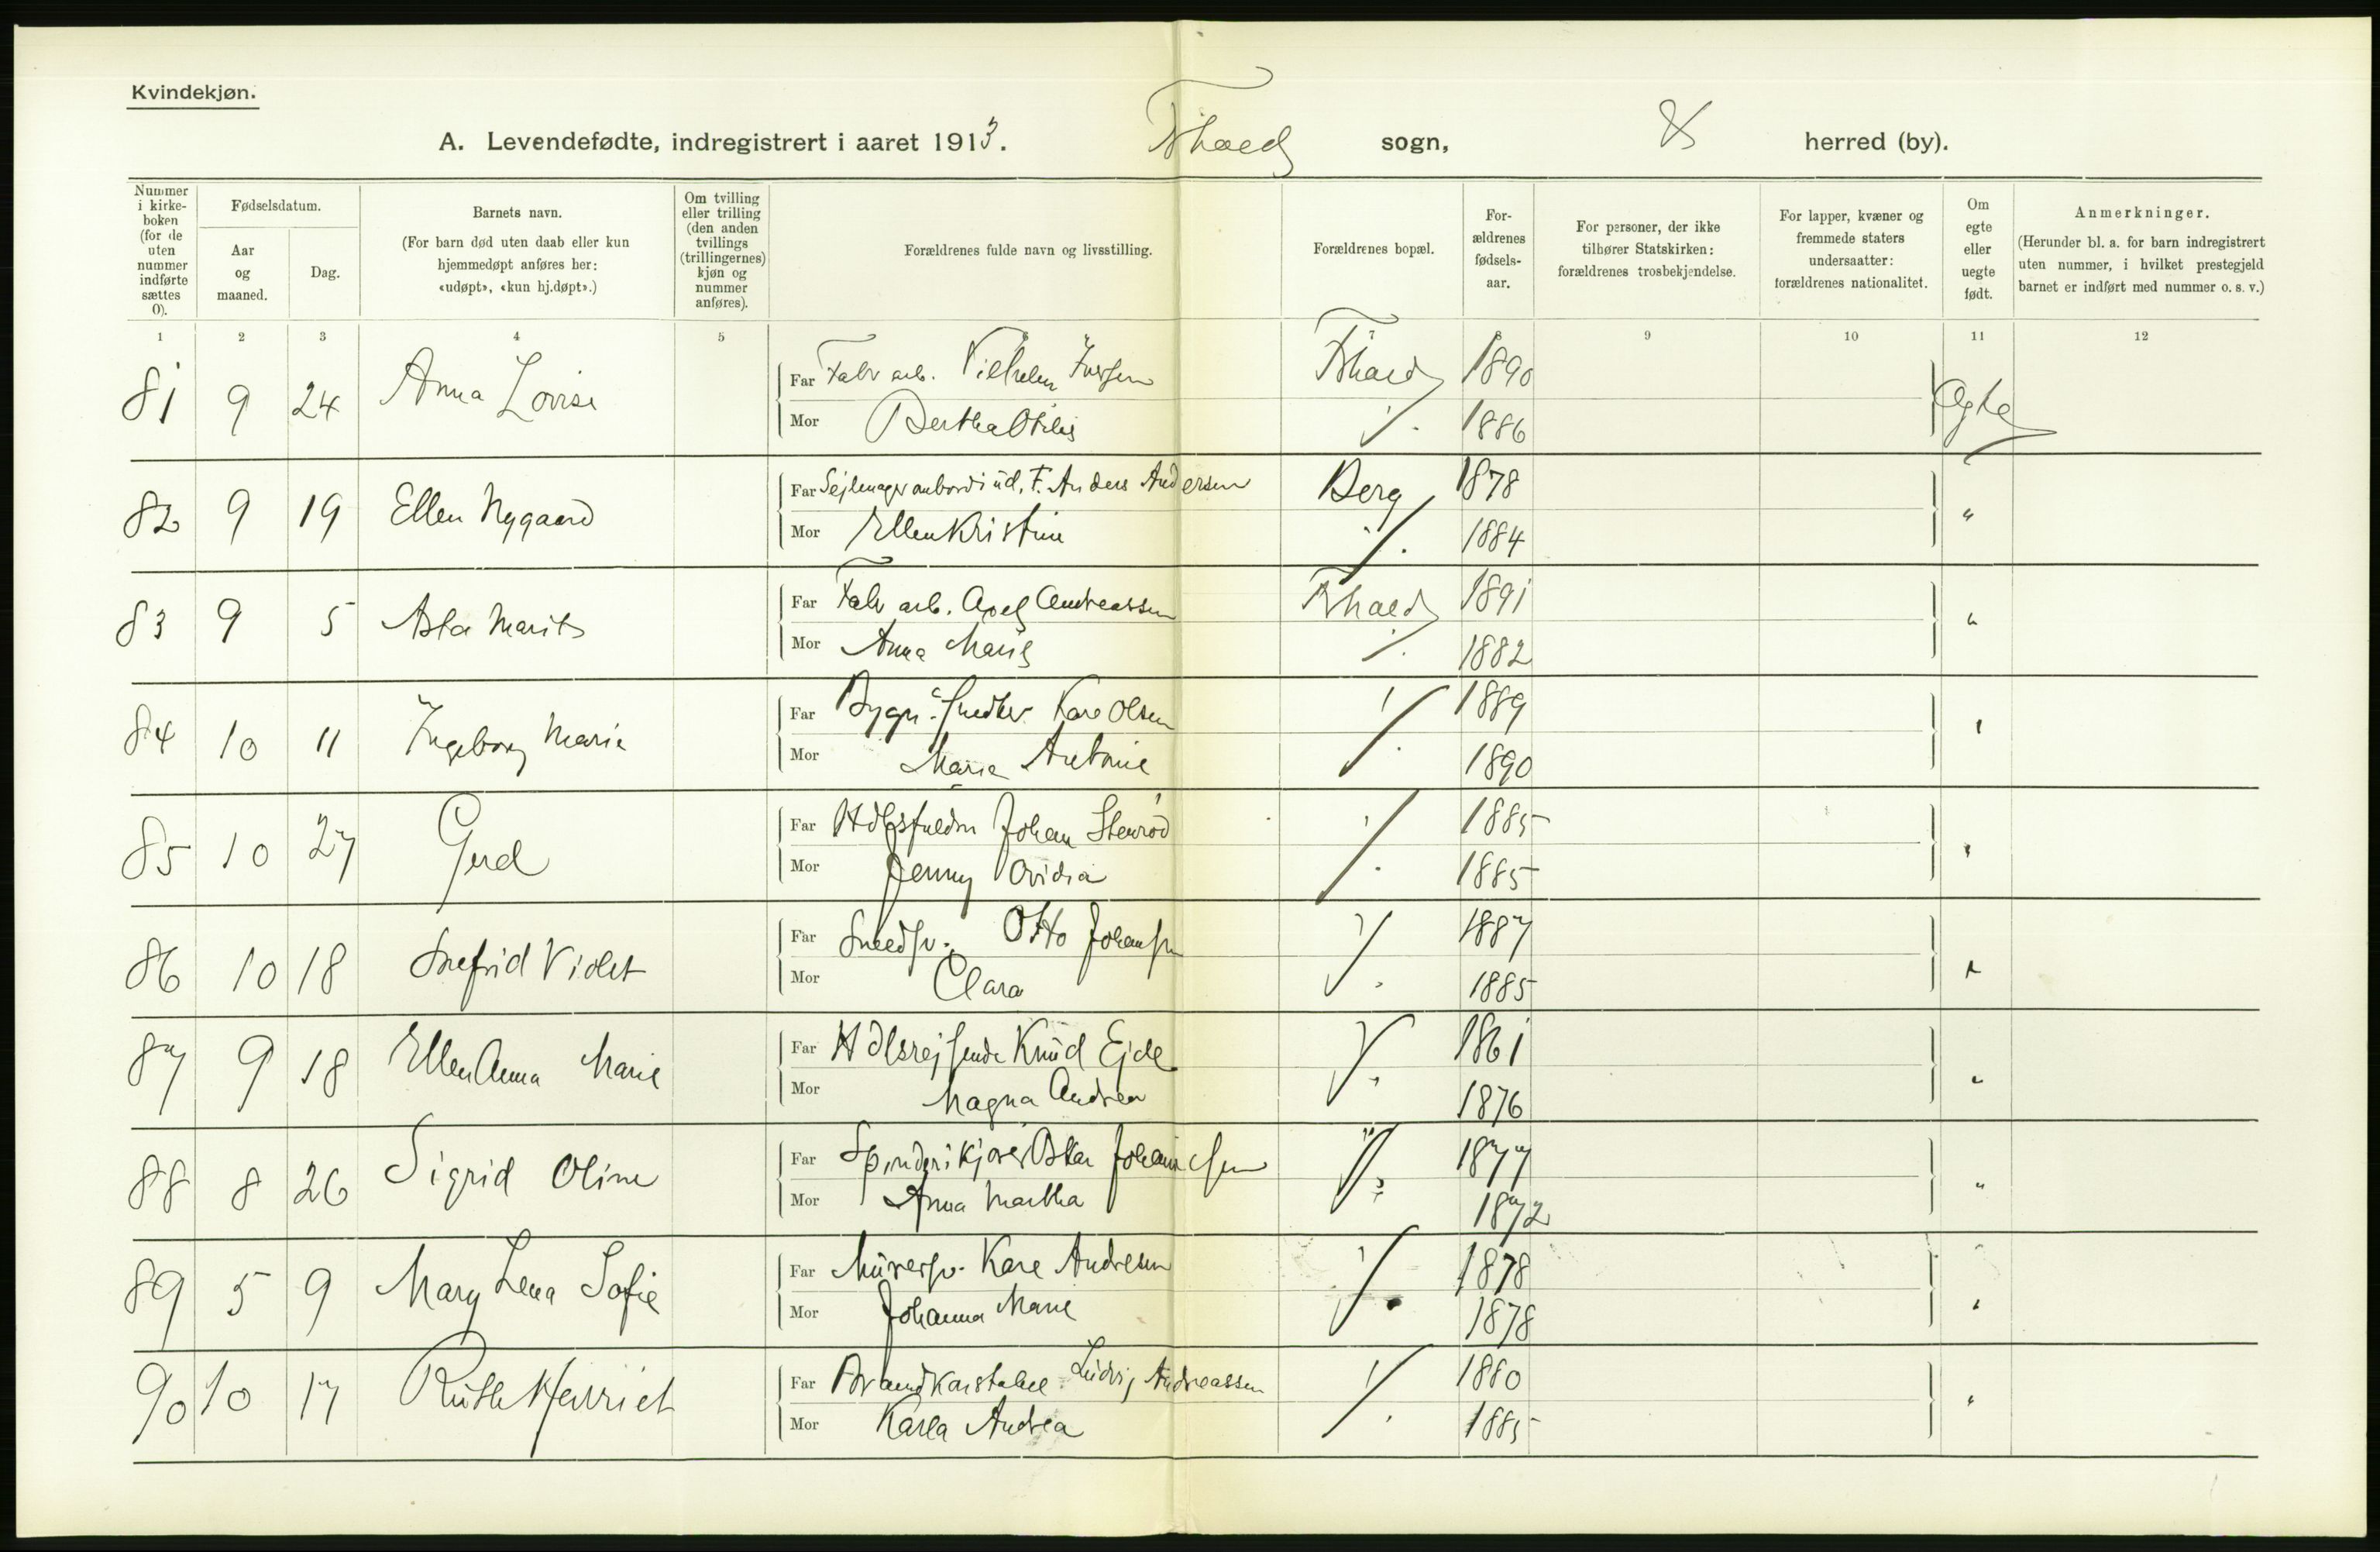 Kvindekjøn.
A. Levendefødte, indregistrert i aaret 1913. Fhald sogn, herred (by).
Nummer i kirke-boken (for de uten nummer indførte sættes 0).
Fødselsdatum.
Aar og maaned.
Dag.
Barnets navn.
(For barn død uten daab eller kun hjemmedøpt anføres her: «udøpt», «kun hj.døpt».)
Om tvilling eller trilling (den anden tvillings (trillingernes) kjøn og nummer anføres).
Forældrenes fulde navn og livsstilling.
Forældrenes bopæl.
For-ældrenes fødsels-aar.
For personer, der ikke tilhører Statskirken: forældrenes trosbekjendelse.
For lapper, kvæner og fremmede staters undersaatter: forældrenes nationalitet.
Om egte eller uegte født.
Anmerkninger.
(Herunder bl. a. for barn indregistrert uten nummer, i hvilket prestegjeld barnet er indført med nummer o. s. v.)
1 2 3 4 5 6 7 8 9 10 11 12
81 9 24 Anna Lovise Far Fabr arb. Vilhelm Iversen Fhald 1890 Ægte
Mor Bertha Otilie 1886
82 9 19 Ellen Nygaard Far Anders Andersen Berg 1878 "
Mor Ellen Kristine 1884
83 9 5 Asta Marit Far Fabr arb. Axel Andreassen Fhald 1891 "
Mor Anna Marie 1882
84 10 11 Ingeborg Marie Far Karl Olsen 1889 "
Mor Marie Antonie 1890
85 10 27 Gerd Far Johan Stenrød 1885 "
Mor Jenny Ovidia 1885
86 10 18 Snefrid Violet Far Snedsv. Otto Johansen 1887 "
Mor Clara 1885
87 9 18 Ellen Anna Marie Far Hdlsrejsende Knud Ejde 1861 "
Mor Magna Andrea 1876
88 8 26 Sigrid Oline Far Oskar Johannesen 1877 "
Mor Anna Martha 1872
89 5 9 Mary Lena Sofie Far Murersv. Karl Andresen 1878 "
Mor Johanna Marie 1878
90 10 17 Ruth Harriet Far Brandkonstabel Ludvig Andreassen 1880 "
Mor Karla Andrea 1885